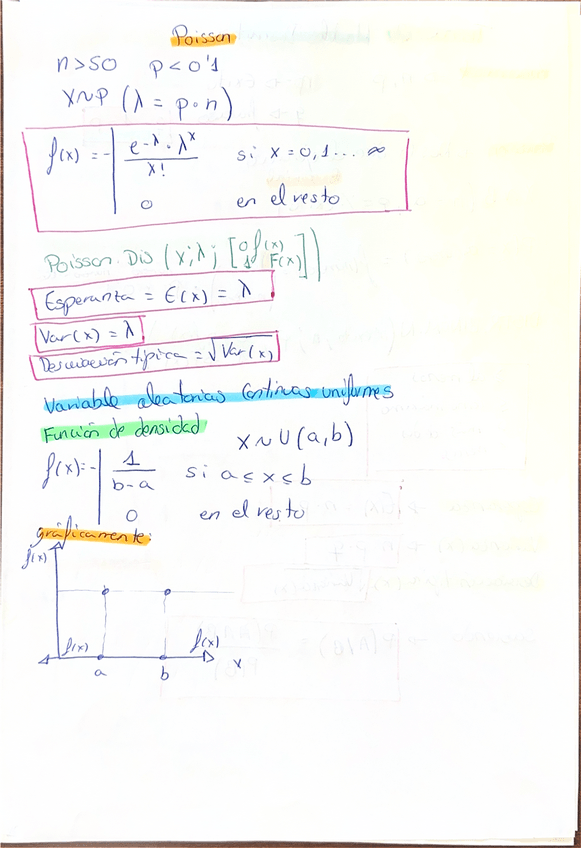 Poisson
n>50 p<0'1
X~P (λ = p·n)
f(x) = e^-λ · λ^x / x! si x = 0,1... ∞
0 en el resto
Poisson. Dis (x; λ; [0 f(x)
1 F(x)])
Esperanza = E(x) = λ
Var(x) = λ
Desviación típica = √Var(x)
Variable aleatorias Continuas uniformes
Función de densidad
X ~ U (a,b)
f(x) = 1 / b-a si a ≤ x ≤ b
0 en el resto
gráficamente:
f(x)
f(x) f(x)
a b x